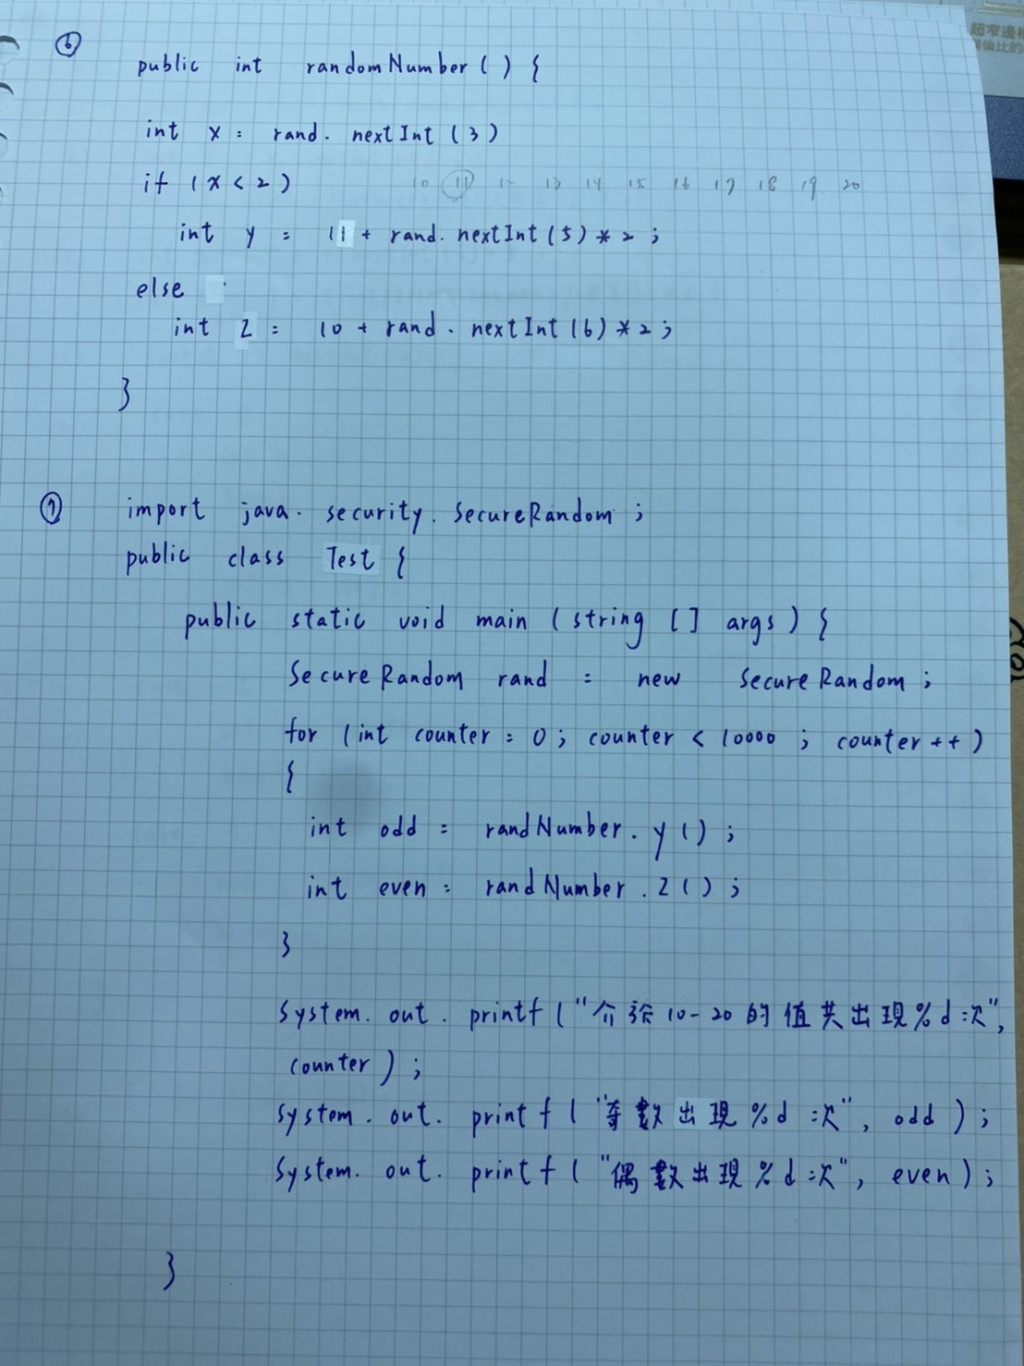 超窄邊
倫比的
⑥
public int randomNumber ( ) {
int x = rand. nextInt (3)
if (x < 2)
10 11 12 13 14 15 16 17 18 19 20
int y = 11 + rand. nextInt (5) * 2 ;
else
int z = 10 + rand. nextInt (6) * 2 ;
}
⑦
import java. security. SecureRandom ;
public class Test {
public static void main ( string [ ] args ) {
SecureRandom rand = new SecureRandom ;
for (int counter = 0 ; counter < 10000 ; counter ++ )
{
int odd = randNumber. y ( ) ;
int even = randNumber. z ( ) ;
}
System. out. printf ( "介於 10-20 的值共出現 %d 次",
counter ) ;
System. out. printf ( "奇數出現 %d 次", odd ) ;
System. out. printf ( "偶數出現 %d 次", even ) ;
}